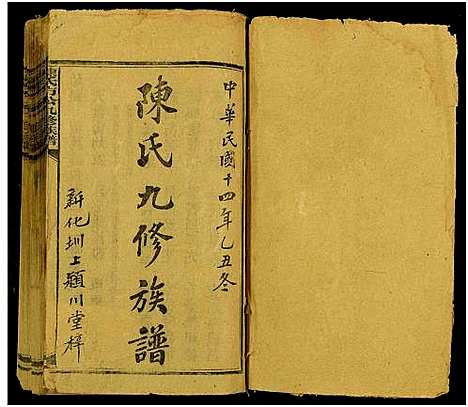 中華民國十四年乙丑冬
陳氏九修族譜
新化圳上潁川堂梓